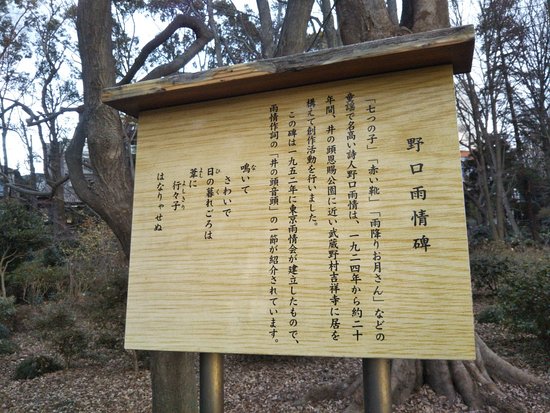 野口雨情碑
「七つの子」「赤い靴」「雨降りお月さん」などの
童謡で名高い詩人野口雨情は、一九二四年から約二十
年間、井の頭恩賜公園に近い武蔵野村吉祥寺に居を
構えて創作活動を行いました。
この碑は一九五二年に東京雨情会が建立したもので、
雨情作詞の「井の頭音頭」の一節が紹介されています。
鳴いて
さわいで
日の暮れごろは
葦に
行々子
はなりゃせぬ
な
ひ
よし
よしきり